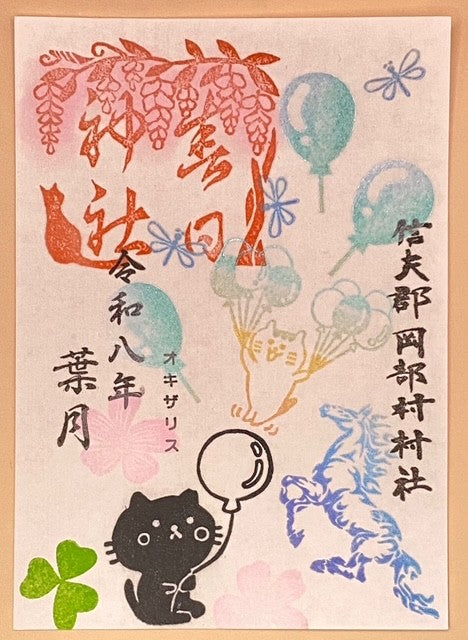 信夫郡岡部村村社
春日
神社
オキザリス
令和八年
葉月